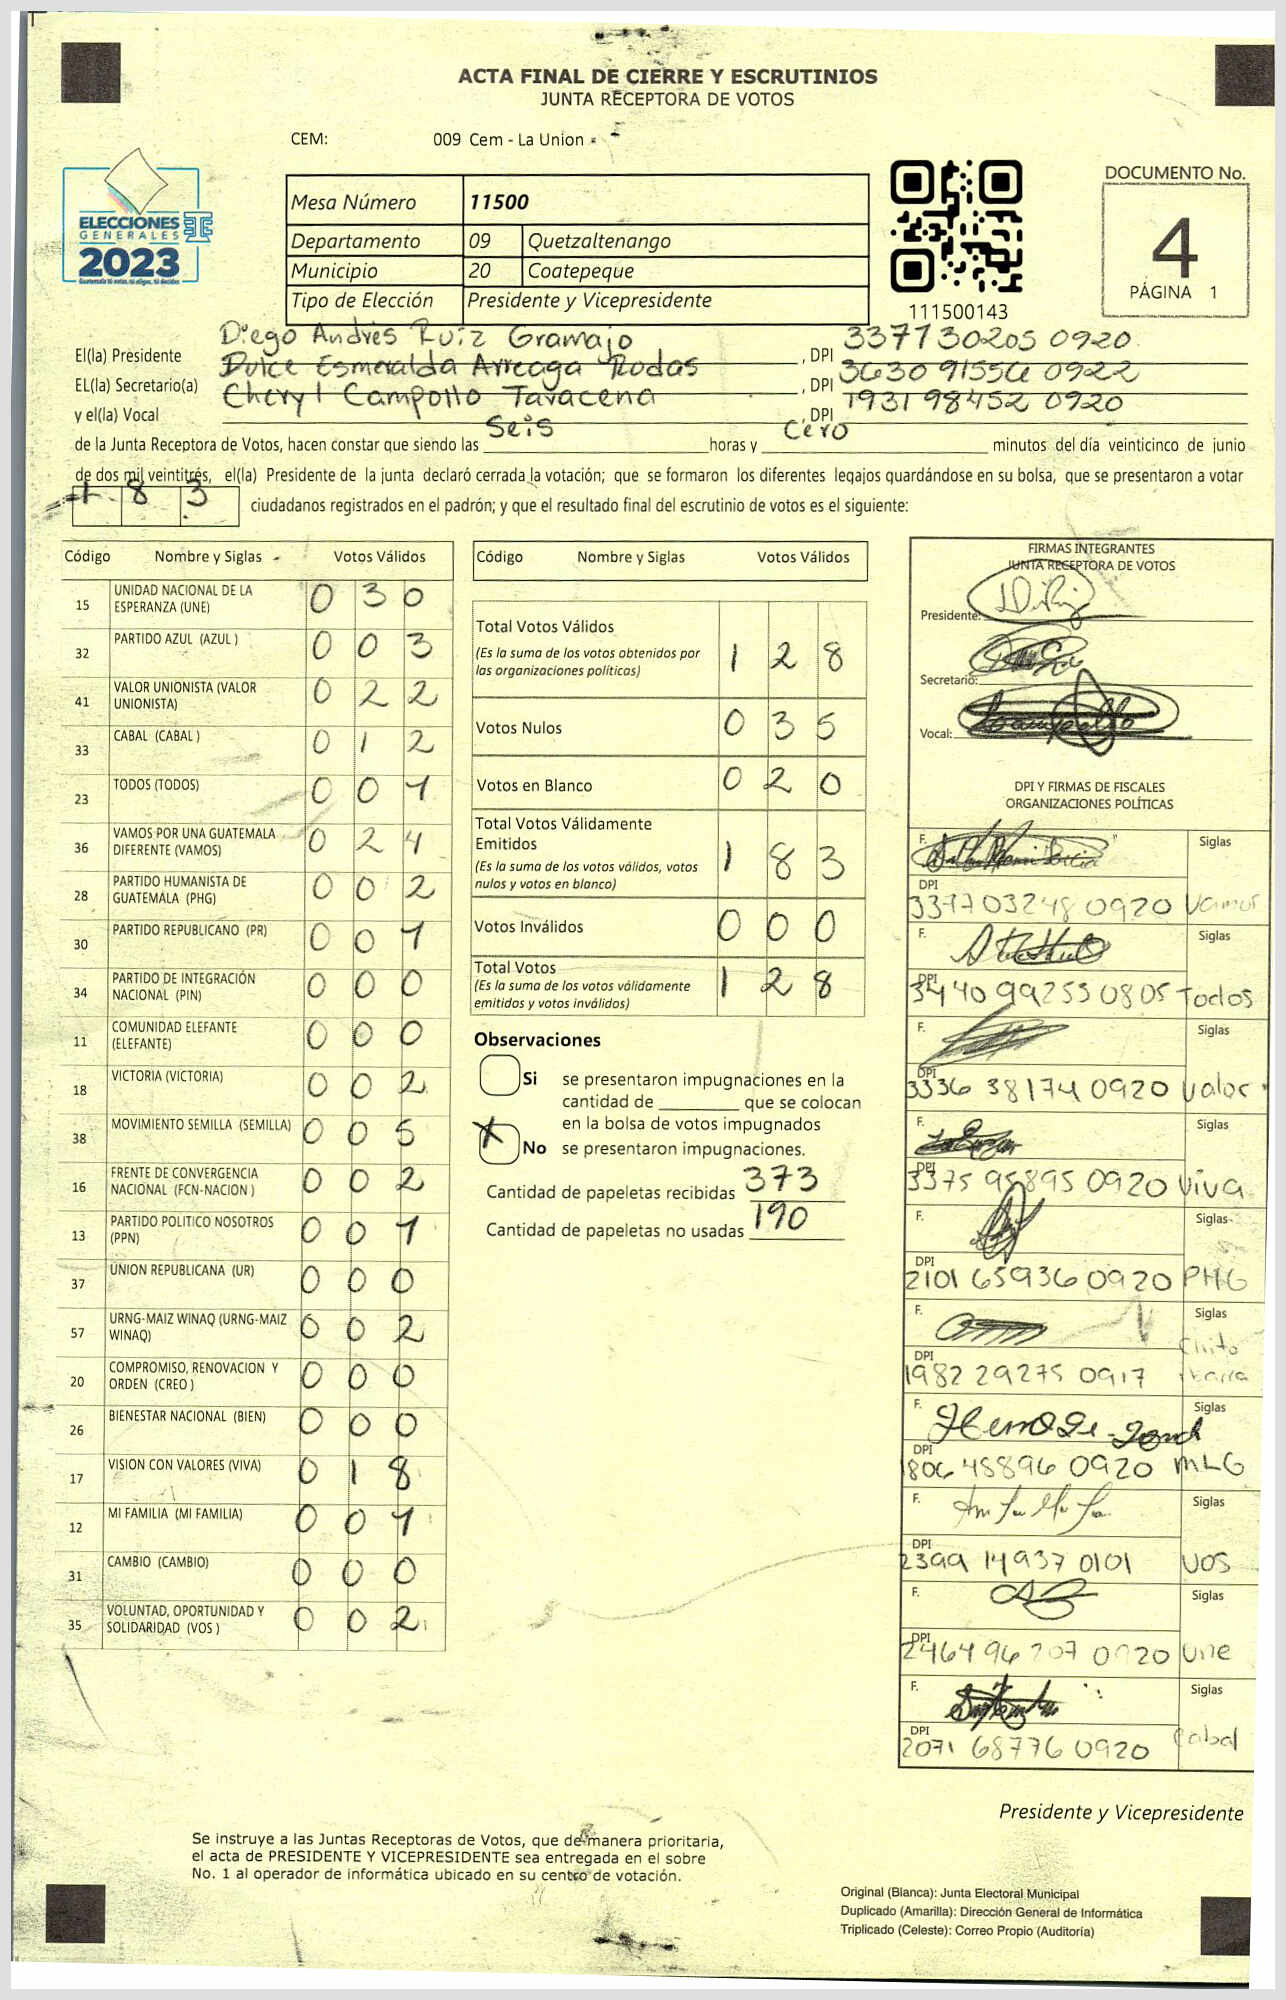 ACTA FINAL DE CIERRE Y ESCRUTINIOS
JUNTA RECEPTORA DE VOTOS
CEM: 009 Cem - La Union
ELECCIONES
GENERALES
2023
Guatemala tú votas, tú eliges, tú decides
Mesa Número 11500
Departamento 09 Quetzaltenango
Municipio 20 Coatepeque
Tipo de Elección Presidente y Vicepresidente
111500143
DOCUMENTO No.
4
PÁGINA 1
El(la) Presidente Diego Andrés Ruiz Gramajo , DPI 337730205 0920
EL(la) Secretario(a) Dulce Esmeralda Arreaga Rodas , DPI 3630 91556 0922
y el(la) Vocal Cheryl Campollo Taracena , DPI 1931 98452 0920
de la Junta Receptora de Votos, hacen constar que siendo las Seis horas y Cero minutos del día veinticinco de junio
de dos mil veintitrés, el(la) Presidente de la junta declaró cerrada la votación; que se formaron los diferentes legajos guardándose en su bolsa, que se presentaron a votar
183 ciudadanos registrados en el padrón; y que el resultado final del escrutinio de votos es el siguiente:
Código Nombre y Siglas Votos Válidos
15 UNIDAD NACIONAL DE LA ESPERANZA (UNE) 0 3 0
32 PARTIDO AZUL (AZUL ) 0 0 3
41 VALOR UNIONISTA (VALOR UNIONISTA) 0 2 2
33 CABAL (CABAL ) 0 1 2
23 TODOS (TODOS) 0 0 1
36 VAMOS POR UNA GUATEMALA DIFERENTE (VAMOS) 0 2 4
28 PARTIDO HUMANISTA DE GUATEMALA (PHG) 0 0 2
30 PARTIDO REPUBLICANO (PR) 0 0 1
34 PARTIDO DE INTEGRACIÓN NACIONAL (PIN) 0 0 0
11 COMUNIDAD ELEFANTE (ELEFANTE) 0 0 0
18 VICTORIA (VICTORIA) 0 0 2
38 MOVIMIENTO SEMILLA (SEMILLA) 0 0 5
16 FRENTE DE CONVERGENCIA NACIONAL (FCN-NACION ) 0 0 2
13 PARTIDO POLITICO NOSOTROS (PPN) 0 0 1
37 UNION REPUBLICANA (UR) 0 0 0
57 URNG-MAIZ WINAQ (URNG-MAIZ WINAQ) 0 0 2
20 COMPROMISO, RENOVACION Y ORDEN (CREO ) 0 0 0
26 BIENESTAR NACIONAL (BIEN) 0 0 0
17 VISION CON VALORES (VIVA) 0 1 8
12 MI FAMILIA (MI FAMILIA) 0 0 1
31 CAMBIO (CAMBIO) 0 0 0
35 VOLUNTAD, OPORTUNIDAD Y SOLIDARIDAD (VOS ) 0 0 2
Código Nombre y Siglas Votos Válidos
Total Votos Válidos 1 2 8
(Es la suma de los votos obtenidos por
las organizaciones políticas)
Votos Nulos 0 3 5
Votos en Blanco 0 2 0
Total Votos Válidamente
Emitidos 1 8 3
(Es la suma de los votos válidos, votos
nulos y votos en blanco)
Votos Inválidos 0 0 0
Total Votos 1 2 8
(Es la suma de los votos válidamente
emitidos y votos inválidos)
Observaciones
Si se presentaron impugnaciones en la
cantidad de ________ que se colocan
en la bolsa de votos impugnados
X No se presentaron impugnaciones.
Cantidad de papeletas recibidas 373
Cantidad de papeletas no usadas 190
FIRMAS INTEGRANTES
JUNTA RECEPTORA DE VOTOS
Presidente:
Secretario:
Vocal:
DPI Y FIRMAS DE FISCALES
ORGANIZACIONES POLÍTICAS
F. Siglas
DPI 337703248 0920 Vamos
F. Siglas
DPI 3440 99255 0805 Todos
F. Siglas
DPI 3336 38174 0920 Valor
F. Siglas
DPI 3375 95895 0920 Viva
F. Siglas
DPI 2101 65936 0920 PHG
F. Siglas
DPI 1982 29275 0917
F. Siglas
DPI 1806 45896 0920 MLG
F. Siglas
DPI 2399 14937 0101 VOS
F. Siglas
DPI 2464 96207 0920 Une
F. Siglas
DPI 2071 68776 0920 Cabal
Presidente y Vicepresidente
Se instruye a las Juntas Receptoras de Votos, que de manera prioritaria,
el acta de PRESIDENTE Y VICEPRESIDENTE sea entregada en el sobre
No. 1 al operador de informática ubicado en su centro de votación.
Original (Blanca): Junta Electoral Municipal
Duplicado (Amarilla): Dirección General de Informática
Triplicado (Celeste): Correo Propio (Auditoría)